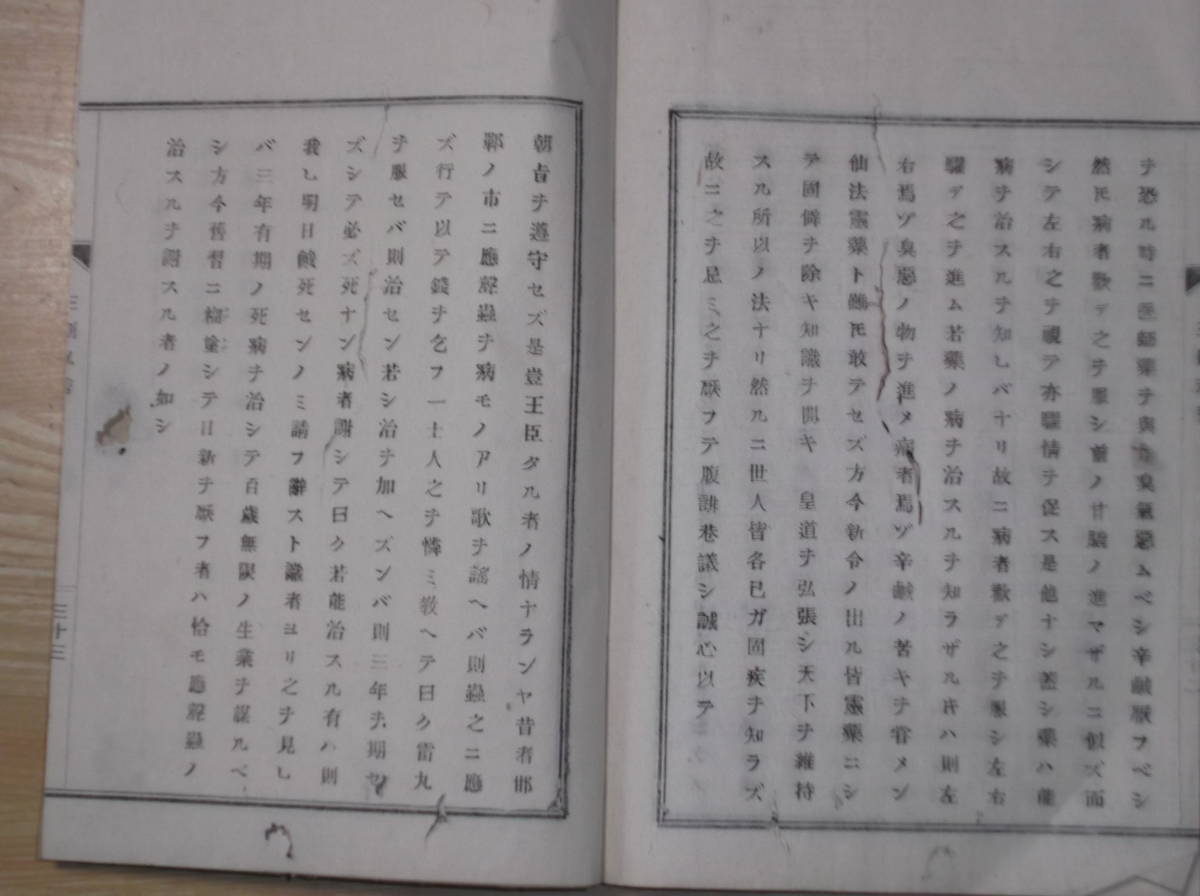 ヲ恐ル時ニ医師藥ヲ與フ臭氣惡ムベシ辛鹹厭フベシ
然𪜈病者歡デ之ヲ服シ前ノ甘驗ノ進マザルニ似ズ而
シテ左右之ヲ視テ亦驩情ヲ促ス是他ナシ蓋シ藥ハ能
病ヲ治スルヲ知レバナリ故ニ病者歡デ之ヲ服シ左右
驩デ之ヲ進ム若藥ノ病ヲ治スルヲ知ラザル𪜈ハ則左
右焉ゾ臭惡ノ物ヲ進メ病者焉ゾ辛鹹ノ著キヲ甞メン
仙法靈藥ト雖𪜈敢テセズ方今新令ノ出ル皆靈藥ニシ
テ固僻ヲ除キ知識ヲ開キ 皇道ヲ弘張シ天下ヲ維持
スル所以ノ法ナリ然ルニ世人皆各己ガ固疾ヲ知ラズ
故ニ之ヲ忌ミ之ヲ厭フテ腹誹巷議シ誠心以テ
朝旨ヲ遵守セズ是豈王臣タル者ノ情ナランヤ昔者邯
鄲ノ市ニ應聲蟲ヲ病モノアリ歌ヲ謠ヘバ則蟲之ニ應
ズ行テ以テ錢ヲ乞フ一士人之ヲ憐ミ敎ヘテ曰ク雷丸
ヲ服セバ則治セン若シ治ヲ加ヘズンバ則三年ヲ期セ
ズシテ必ズ死ナン病者謝シテ曰ク若能治スル有ハ則
我レ明日餓死センノミ請フ辭スト識者ヨリ之ヲ見レ
バ三年有期ノ死病ヲ治シテ百歳無限ノ生業ヲ謀ルベ
シ方今舊習ニ糊塗シテ日新ヲ厭フ者ハ恰モ應聲蟲ノ
治スルヲ謝スル者ノ如シ
三十三